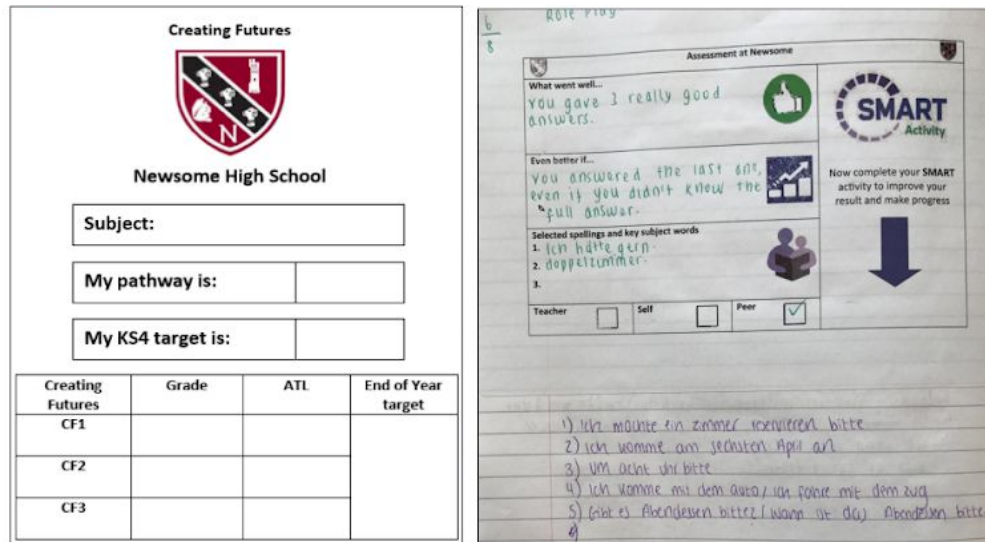 Creating Futures
N
Newsome High School
Subject:
My pathway is:
My KS4 target is:
Creating Futures Grade ATL End of Year target
CF1
CF2
CF3
6
8
Role Play
Assessment at Newsome
What went well...
you gave 3 really good
answers.
Even better if...
you answered the last one,
even if you didn't know the
full answer.
Selected spellings and key subject words
1. Ich hätte gern.
2. doppelzimmer.
3.
Teacher Self Peer ✓
SMART
Activity
Now complete your SMART
activity to improve your
result and make progress
1) Ich möchte ein zimmer reservieren bitte
2) Ich komme am sechsten April an
3) um acht uhr bitte
4) Ich komme mit dem auto / ich fahre mit dem zug
5) Gibt es Abendessen bitte? / Wann ist das Abendessen bitte